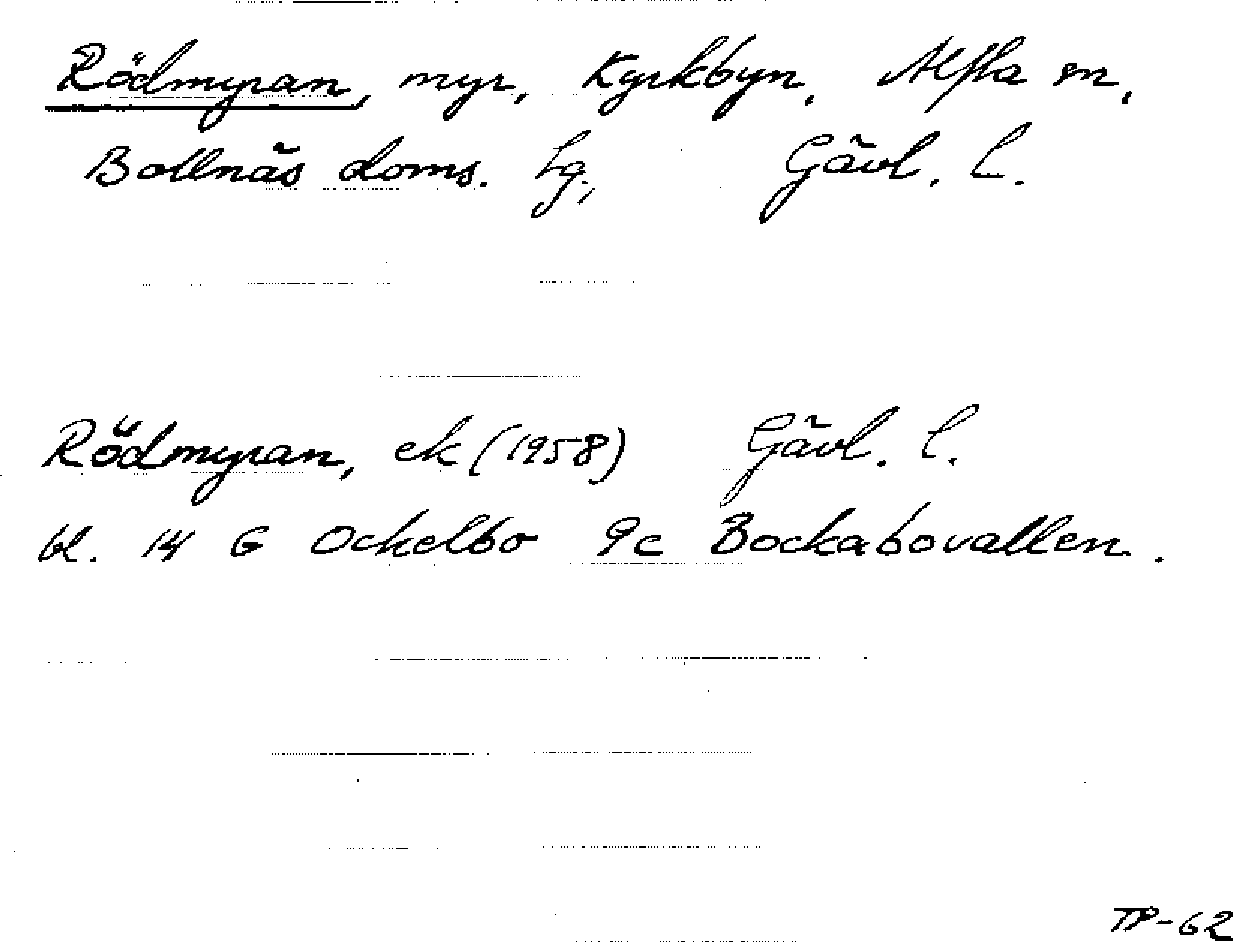 Rödmyran, myr, Kyrkbyn, Alfta sn,
Bollnäs doms. lg., Gävl. l.
Rödmyran, ek (1958) Gävl. l.
bl. 14 G Ockelbo 9c Bockabovallen.
TP-62